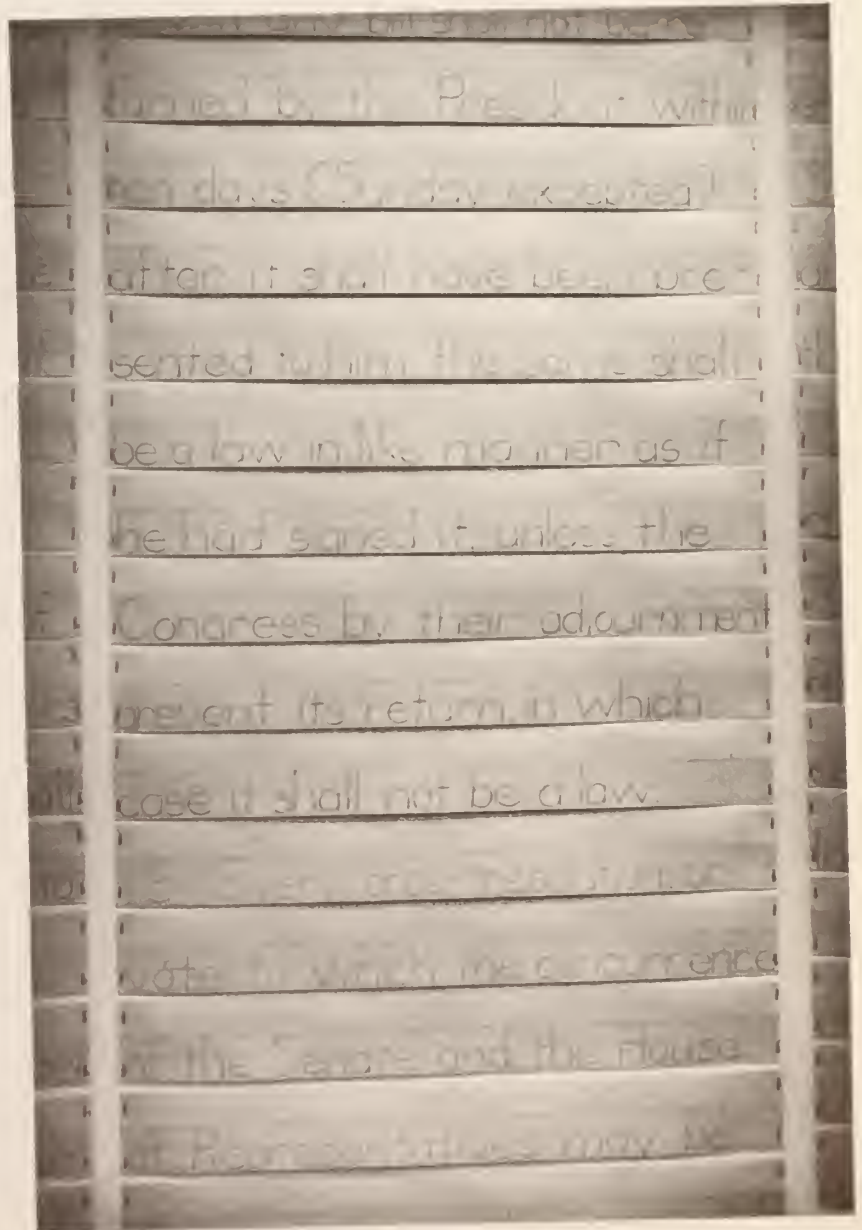 any bill shall not be re-
turned by the President within
ten days (Sunday excepted)
after it shall have been pre-
sented to him, the same shall
be a law in like manner as if
he had signed it, unless the
Congress by their adjournment
prevent its return, in which
case it shall not be a law.
Every order, resolution, or
vote to which the concurrence
of the Senate and the House
of Representatives may be